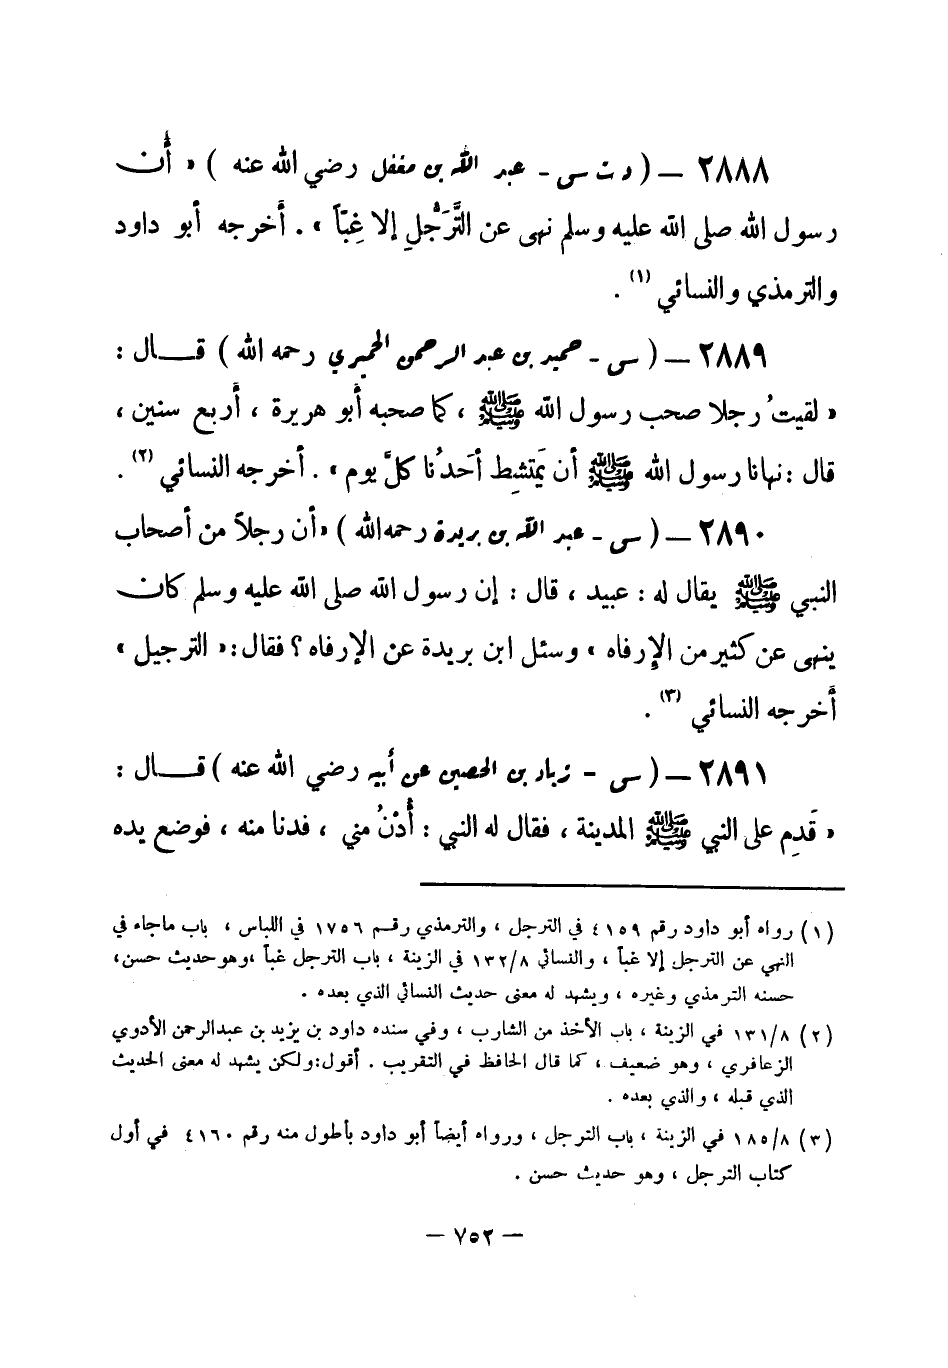 ٢٨٨٨ – ( د ت س - عبد الله بن مغفل رضي الله عنه ) « أَن
رسول الله صلى الله عليه وسلم نهى عن التَّرَجُّلِ إلا غِبّاً » . أخرجه أبو داود
والترمذي والنسائي (١) .
٢٨٨٩ – ( س - حميد بن عبد الرحمن الحميري رحمه الله ) قـــال :
« لقيتُ رجلا صحب رسول الله ﷺ ، كما صحبه أبو هريرة ، أربع سنين ،
قال : نهانا رسول الله ﷺ أن يَمتشِط أحَدُنا كلَّ يوم » . أخرجه النسائي (٢) .
٢٨٩٠ – ( س - عبد الله بن بريدة رحمه الله ) « أن رجلاً من أصحاب
النبي ﷺ يقال له : عبيد ، قال : إن رسول الله صلى الله عليه وسلم كان
ينهى عن كثير من الإرفاه » وسئل ابن بريدة عن الإرفاه ؟ فقال : « الترجيل »
أخرجه النسائي (٣) .
٢٨٩١ – ( س - زياد بن الحصين عن أبيه رضي الله عنه ) قـــال :
« قَدِم على النبي ﷺ المدينة ، فقال له النبي : أُدْنُ مني ، فدنا منه ، فوضع يده
(١) رواه أبو داود رقم ٤١٥٩ في الترجل ، والترمذي رقـم ١٧٥٦ في اللباس ، باب ماجاء في
النهي عن الترجل إلا غباً ، والنسائي ١٣٢/٨ في الزينة ، باب الترجل غباً ، وهو حديث حسن ،
حسنه الترمذي وغيره ، ويشهد له معنى حديث النسائي الذي بعده .
(٢) ١٣١/٨ في الزينة ، باب الأخذ من الشارب ، وفي سنده داود بن يزيد بن عبدالرحمن الأدوي
الزعافري ، وهو ضعيف ، كما قال الحافظ في التقريب . أقول : ولكن يشهد له معنى الحديث
الذي قبله ، والذي بعده .
(٣) ١٨٥/٨ في الزينة ، باب الترجل ، ورواه أيضاً أبو داود بأطول منه رقم ٤١٦٠ في أول
كتاب الترجل ، وهو حديث حسن .
– ٧٥٢ –